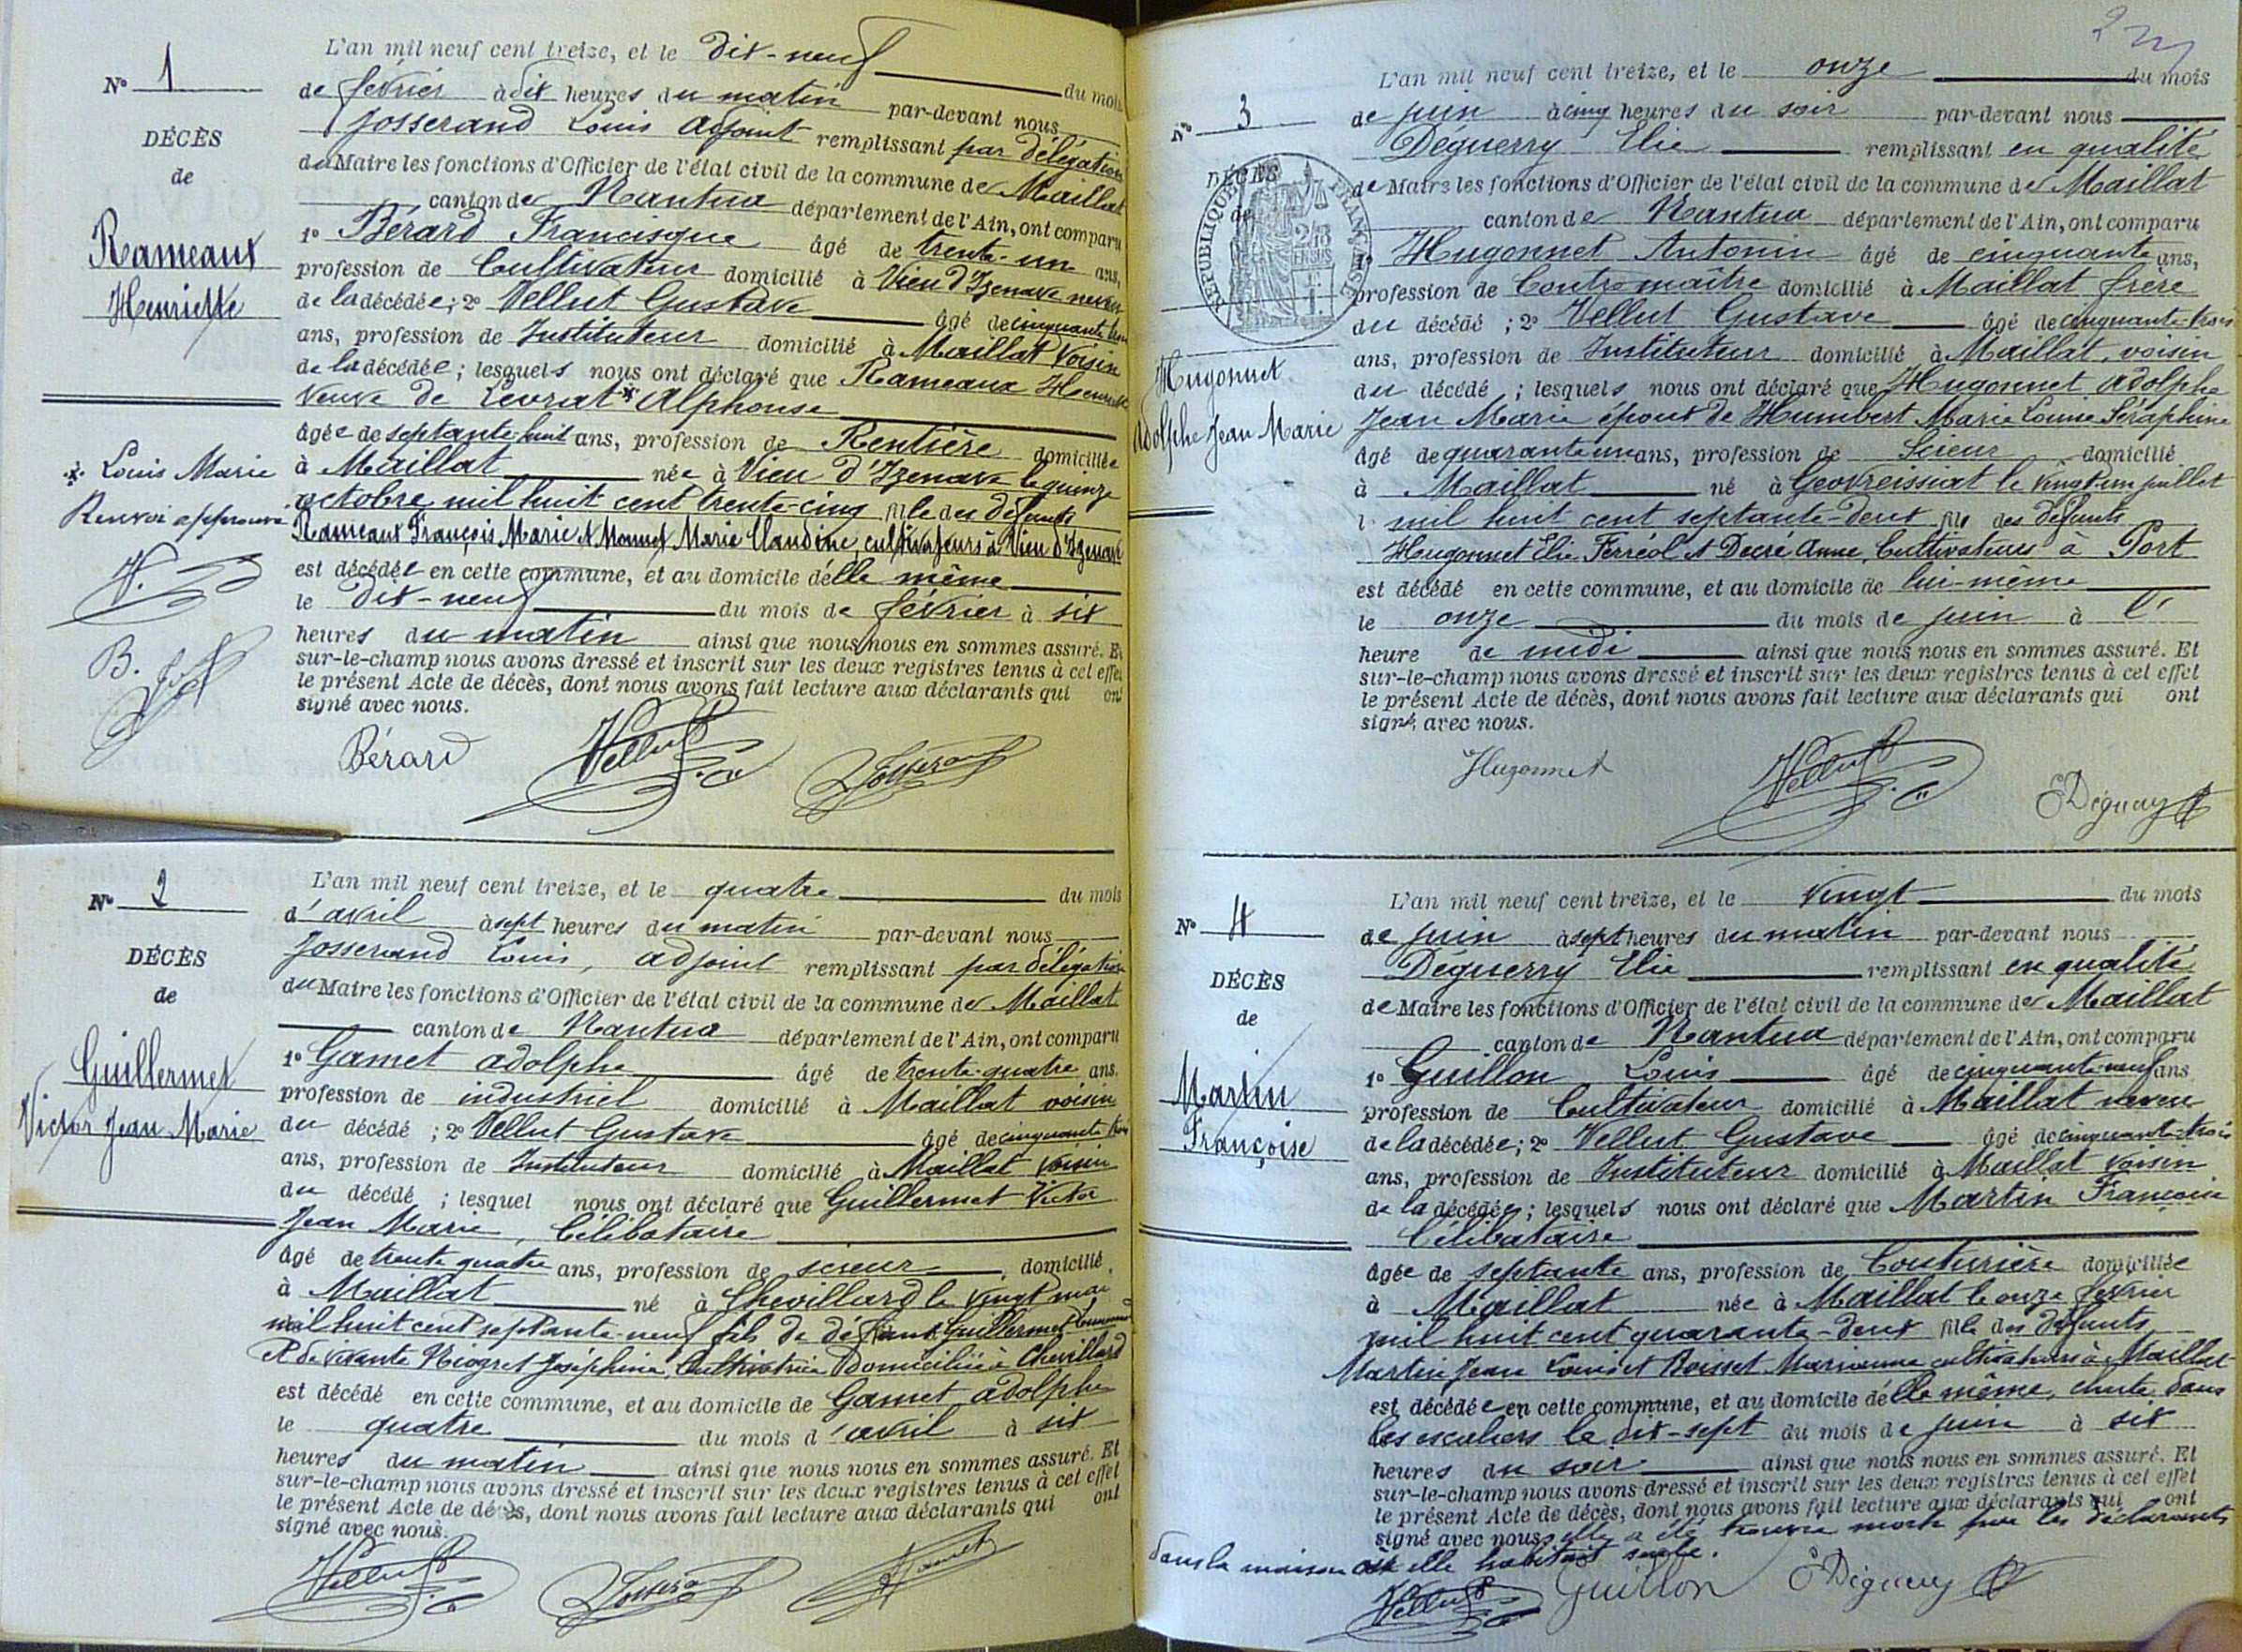 N° 1
DÉCÈS
de
Rameaux
Henriette
* Louis Marie
Renvoi approuvé
V.
B. J.
L'an mil neuf cent treize, et le dix-neuf du mois
de février à dix heures du matin par-devant nous
Josserand Louis Adjoint remplissant par délégation
du Maire les fonctions d'Officier de l'état civil de la commune de Maillat
canton de Nantua département de l'Ain, ont comparu
1° Bérard Francisque âgé de trente-un ans,
profession de Cultivateur domicilié à Vieu d'Izenave neveu
de la décédée ; 2° Vellut Gustave âgé de cinquante trois
ans, profession de Instituteur domicilié à Maillat voisin
de la décédée ; lesquels nous ont déclaré que Rameaux Henriette
Veuve de Levrat * Alphonse
âgée de septante huit ans, profession de Rentière domiciliée
à Maillat née à Vieu d'Izenave le quinze
octobre mil huit cent trente-cinq fille des défunts
Rameaux François Marie et Monnet Marie Claudine, cultivateurs à Vieu d'Izenave
est décédée en cette commune, et au domicile d'elle même
le dix-neuf du mois de février à six
heures du matin ainsi que nous nous en sommes assuré. Et
sur-le-champ nous avons dressé et inscrit sur les deux registres tenus à cet effet
le présent Acte de décès, dont nous avons fait lecture aux déclarants qui ont
signé avec nous.
Bérard Vellut Josserand
N° 2
DÉCÈS
de
Guillermet
Victor Jean Marie
L'an mil neuf cent treize, et le quatre du mois
d'avril à sept heures du matin par-devant nous
Josserand Louis, adjoint remplissant par délégation
du Maire les fonctions d'Officier de l'état civil de la commune de Maillat
canton de Nantua département de l'Ain, ont comparu
1° Gamet adolphe âgé de trente-quatre ans.
profession de industriel domicilié à Maillat voisin
du décédé ; 2° Vellut Gustave âgé de cinquante trois
ans, profession de Instituteur domicilié à Maillat voisin
du décédé ; lesquel nous ont déclaré que Guillermet Victor
Jean Marie, Célibataire
âgé de trente quatre ans, profession de scieur domicilié,
à Maillat né à Chevillard le vingt mai
mil huit cent septante-neuf fils de défunt Guillermet
et de vivante Niogret Joséphine, Cultivatrice domiciliée à Chevillard
est décédé en cette commune, et au domicile de Gamet adolphe
le quatre du mois d'avril à six
heures du matin ainsi que nous nous en sommes assuré. Et
sur-le-champ nous avons dressé et inscrit sur les deux registres tenus à cet effet
le présent Acte de décès, dont nous avons fait lecture aux déclarants qui ont
signé avec nous.
Vellut Josserand Gamet
N° 3
DÉCÈS
de
RÉPUBLIQUE FRANÇAISE
2/10 EN SUS
Hugonnet
Adolphe Jean Marie
L'an mil neuf cent treize, et le onze du mois
de juin à cinq heures du soir par-devant nous
Déguerry Elie remplissant en qualité
de Maire les fonctions d'Officier de l'état civil de la commune de Maillat
canton de Nantua département de l'Ain, ont comparu
1° Hugonnet Antonin âgé de cinquante ans,
profession de Contremaître domicilié à Maillat frère
du décédé ; 2° Vellut Gustave âgé de cinquante-trois
ans, profession de Instituteur domicilié à Maillat, voisin
du décédé ; lesquels nous ont déclaré que Hugonnet Adolphe
Jean Marie époux de Humbert Marie Louise Séraphine
âgé de quarante un ans, profession de Scieur domicilié
à Maillat né à Géovreissiat le vingt un juillet
mil huit cent septante-deux fils des défunts
Hugonnet Elie Ferréol et Decré Anne, Cultivateurs à Port
est décédé en cette commune, et au domicile de lui-même
le onze du mois de juin à l'
heure de midi ainsi que nous nous en sommes assuré. Et
sur-le-champ nous avons dressé et inscrit sur les deux registres tenus à cet effet
le présent Acte de décès, dont nous avons fait lecture aux déclarants qui ont
signé, avec nous.
Hugonnet Vellut E Déguerry
N° 4
DÉCÈS
de
Martin
Françoise
L'an mil neuf cent treize, et le vingt du mois
de juin à sept heures du matin par-devant nous
Déguerry Elie remplissant en qualité
de Maire les fonctions d'Officier de l'état civil de la commune de Maillat
canton de Nantua département de l'Ain, ont comparu
1° Guillon Louis âgé de cinquante-neuf ans
profession de Cultivateur domicilié à Maillat neveu
de la décédée ; 2° Vellut Gustave âgé de cinquante-trois
ans, profession de Instituteur domicilié à Maillat voisin
de la décédée ; lesquels nous ont déclaré que Martin Françoise
Célibataire
âgée de septante ans, profession de Couturière domiciliée
à Maillat née à Maillat le onze février
mil huit cent quarante-deux fille des défunts
Martin Jean Louis et Boisset Marianne cultivateurs à Maillat
est décédée en cette commune, et au domicile d'elle même, chute dans
les escaliers le dix-sept du mois de juin à six
heures du soir ainsi que nous nous en sommes assuré. Et
sur-le-champ nous avons dressé et inscrit sur les deux registres tenus à cet effet
le présent Acte de décès, dont nous avons fait lecture aux déclarants qui ont
signé avec nous, elle a été trouvée morte par les déclarants
dans la maison où elle habitait seule.
Vellut Guillon E Déguerry